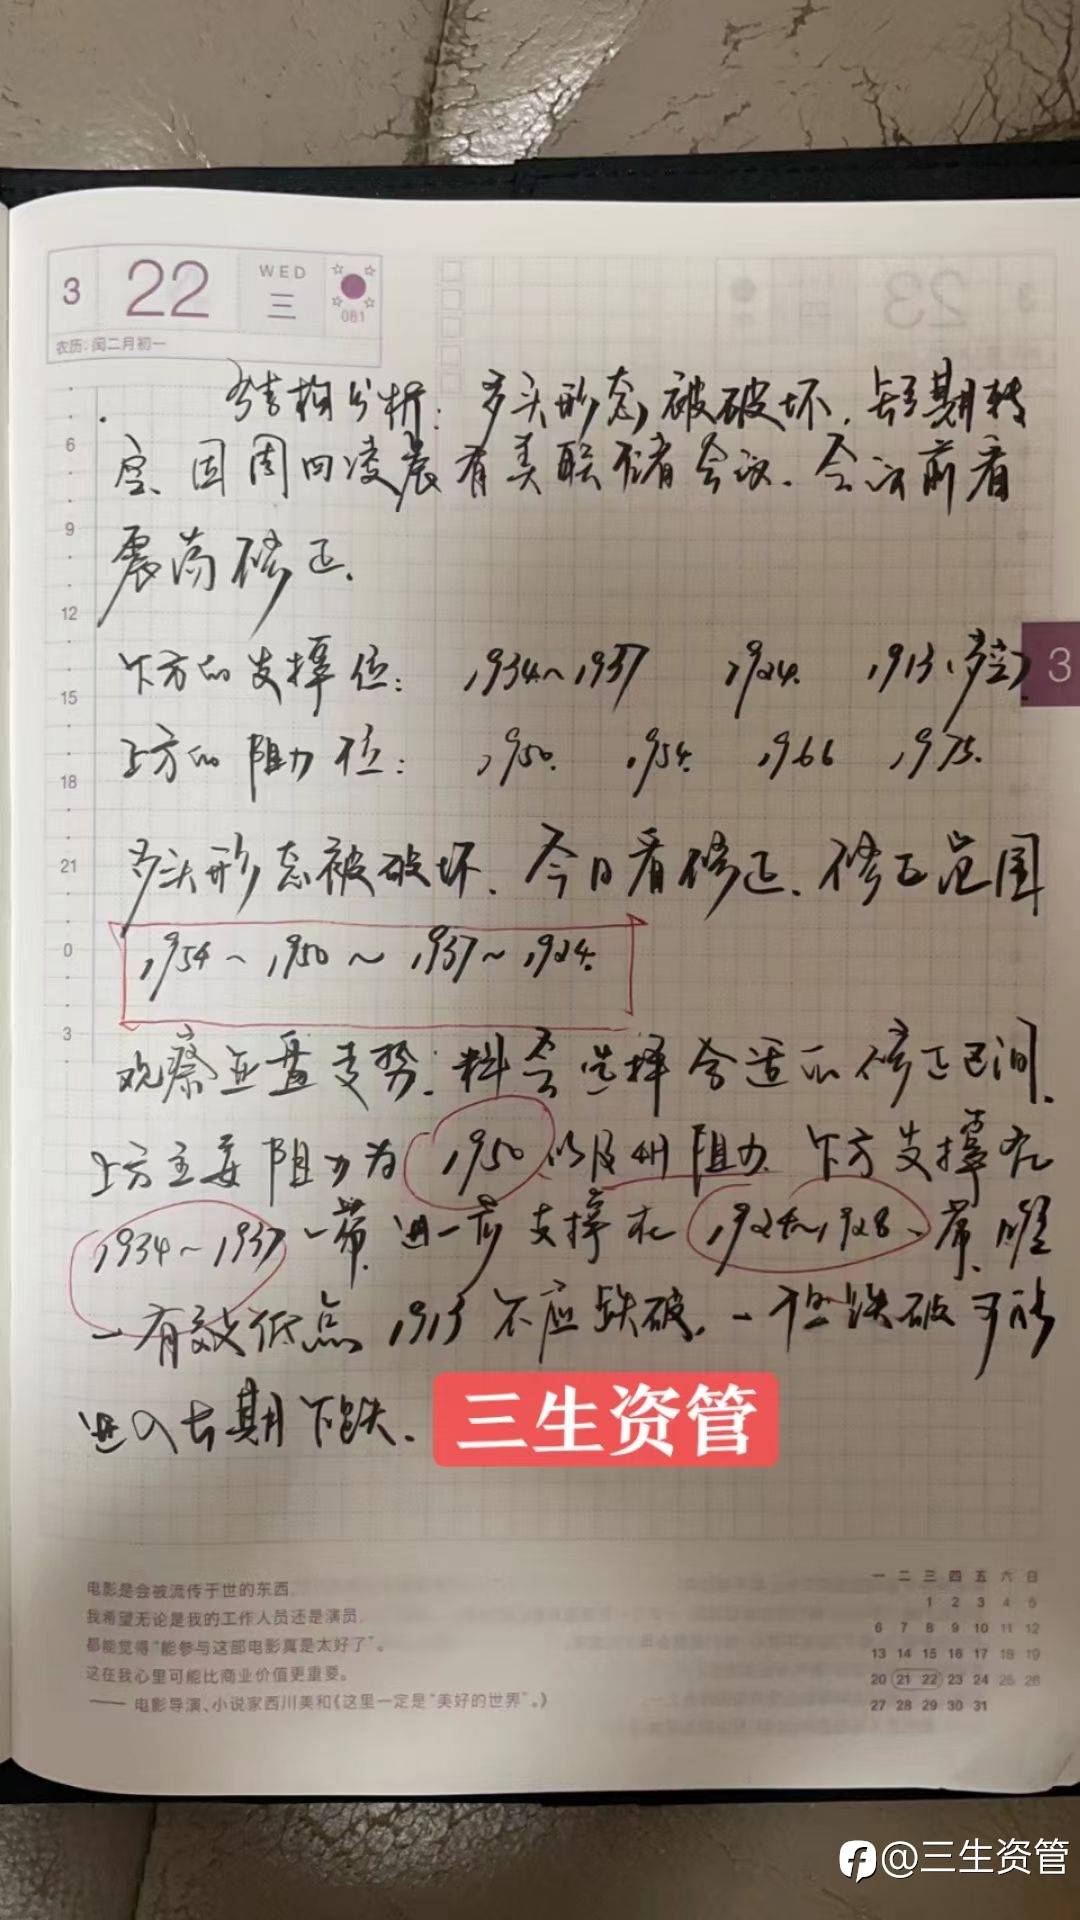 3 22 WED 三
081
农历:闰二月初一
结构分析:多头形态被破坏,短期转
空、因周四凌晨有美联储会议、会议前看
震荡修正.
下方的支撑位: 1934~1937 1924. 1913(多空)
上方的阻力位: 1950. 1954. 1966 1975.
多头形态被破坏、今日看修正、修正范围
1954~1950~1937~1924.
观察亚盘走势:料会选择合适的修正区间.
上方主要阻力为1950以及4H阻力 下方支撑在
1934~1937一带 进一步支撑在1924~1928一带,唯
一有效低点1913不应跌破.一但跌破可能
进入长期下跌.
三生资管
6
9
12
15
18
21
0
3
3
电影是会被流传于世的东西
我希望无论是我的工作人员还是演员,
都能觉得“能参与这部电影真是太好了”。
这在我心里可能比商业价值更重要。
——电影导演、小说家西川美和《这里一定是“美好的世界”。》
一 二 三 四 五 六 日
1 2 3 4 5
6 7 8 9 10 11 12
13 14 15 16 17 18 19
20 21 22 23 24 25 26
27 28 29 30 31
@三生资管